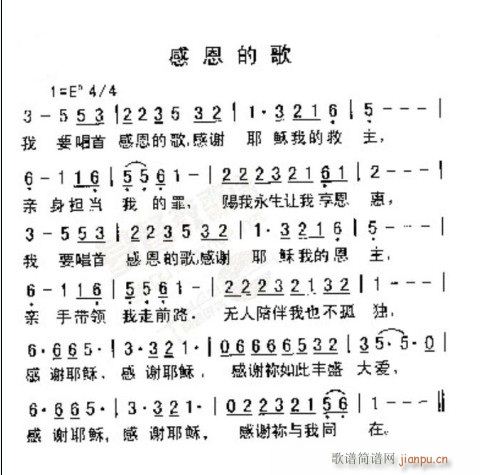 感恩的歌
1=Eᵇ 4/4
3 - 5 5 3 | 2 2 3 5 3 2 | 1 · 3 2 1 6 | 5 - - - |
我 要唱首 感恩的歌,感谢 耶 稣我的救 主,
6 - 1 1 6 | 5 5 6 1 - | 2 2 2 3 2 1 6 1 | 2 - - - |
亲 身担当 我 的罪, 赐我永生让我享恩 惠,
3 - 5 5 3 | 2 2 3 5 3 2 | 1 · 3 2 1 6 | 5 - - - |
我 要唱首 感恩的歌,感谢 耶 稣我的恩 主,
6 - 1 1 6 | 5 5 6 1 - | 2 2 2 3 2 1 2 3 | 2 - - - |
亲 手带领 我走前路. 无人陪伴我也不孤 独,
6 · 6 6 5 · | 3 · 3 2 1 · | 0 6 6 6 6 5 3 2 | 3 5 · 5 · 0 |
感 谢耶稣. 感 谢耶稣, 感谢祢如此丰盛 大爱,
6 · 6 6 5 · | 3 · 3 2 1 · | 0 2 2 3 2 1 5 6 | 1 - - - ‖
感 谢耶稣, 感 谢耶稣, 感谢祢与我同 在.
歌谱简谱网
jianpu.cn